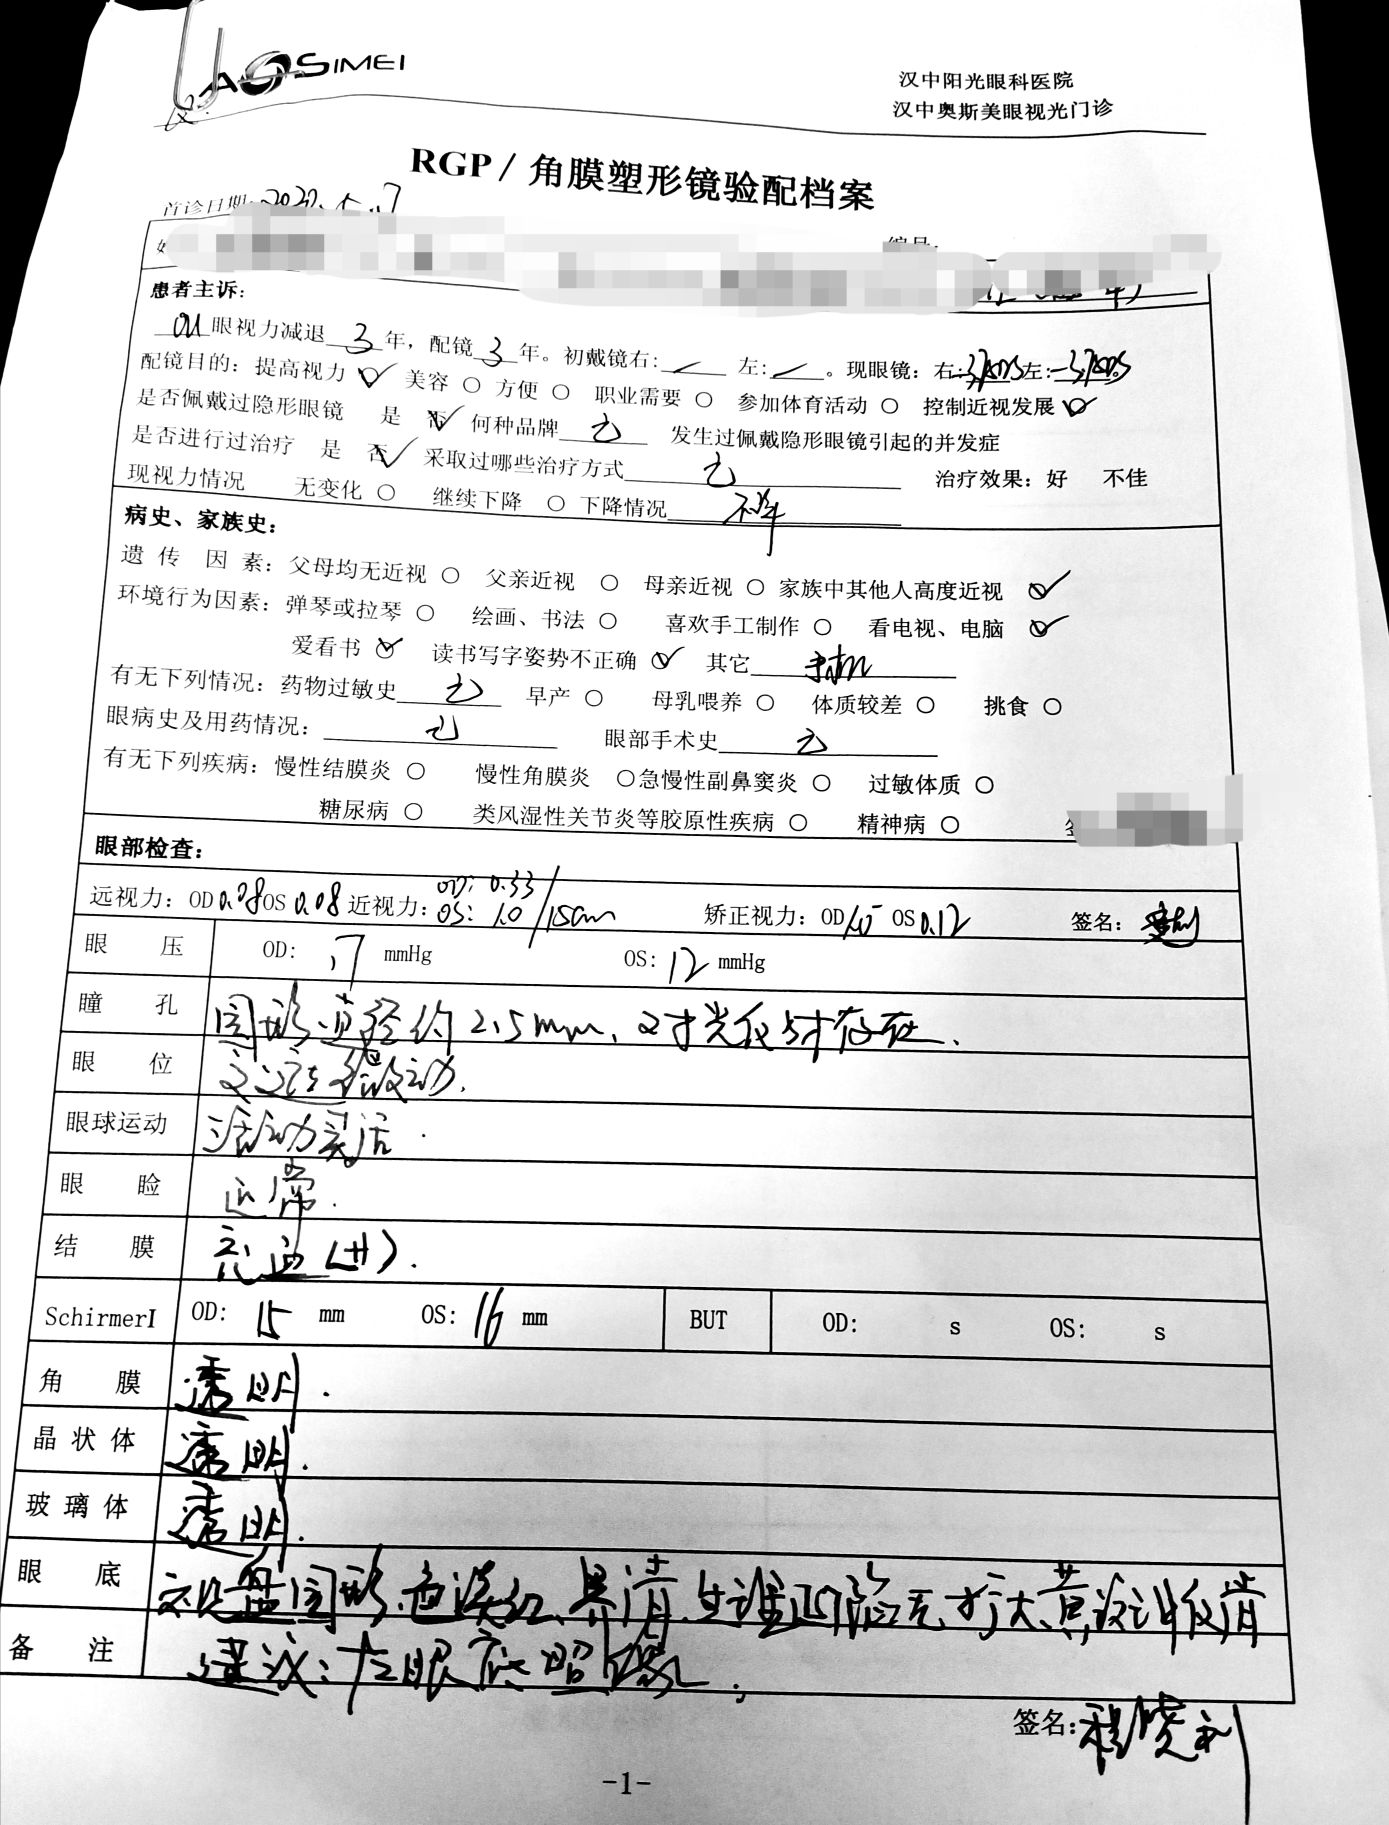 AOSIMEI
汉中阳光眼科医院
汉中奥斯美眼视光门诊
RGP / 角膜塑形镜验配档案
首诊日期:
编号:
患者主诉:
OU眼视力减退 3 年，配镜 3 年。初戴镜右: / 左: / 。现眼镜: 右: 左:
配镜目的: 提高视力 ✓ 美容 ○ 方便 ○ 职业需要 ○ 参加体育活动 ○ 控制近视发展 ✓
是否佩戴过隐形眼镜 是 否 ✓ 何种品牌 无 发生过佩戴隐形眼镜引起的并发症
是否进行过治疗 是 否 ✓ 采取过哪些治疗方式 无 治疗效果: 好 不佳
现视力情况 无变化 ○ 继续下降 ○ 下降情况 不详
病史、家族史:
遗 传 因 素: 父母均无近视 ○ 父亲近视 ○ 母亲近视 ○ 家族中其他人高度近视 ✓
环境行为因素: 弹琴或拉琴 ○ 绘画、书法 ○ 喜欢手工制作 ○ 看电视、电脑 ✓
爱看书 ✓ 读书写字姿势不正确 ✓ 其它 手机
有无下列情况: 药物过敏史 无 早产 ○ 母乳喂养 ○ 体质较差 ○ 挑食 ○
眼病史及用药情况: 无 眼部手术史 无
有无下列疾病: 慢性结膜炎 ○ 慢性角膜炎 ○ 急慢性副鼻窦炎 ○ 过敏体质 ○
糖尿病 ○ 类风湿性关节炎等胶原性疾病 ○ 精神病 ○
眼部检查:
远视力: OD 0.08 OS 0.08 近视力: OD: 0.33 OS: 1.0 /15cm 矫正视力: OD OS 0.12 签名:
眼 压 OD: 17 mmHg OS: 12 mmHg
瞳 孔 圆形直径约2.5mm, 对光反射存在.
眼 位
眼球运动 活动灵活.
眼 睑 正常.
结 膜 充血(++).
SchirmerI OD: 15 mm OS: 16 mm BUT OD: s OS: s
角 膜 透明.
晶 状 体 透明.
玻 璃 体 透明.
眼 底 视盘圆形 色淡红、界清、生理凹陷无扩大、黄斑中反清
备 注 建议: 左眼底照像;
签名: 程晓利
-1-